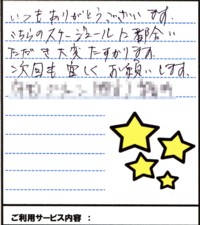 いつもありがとうございます。
こちらのスケージュールに都合い
ただき大変たすかります。
次回も宜しくお願いします。
ご利用サービス内容：